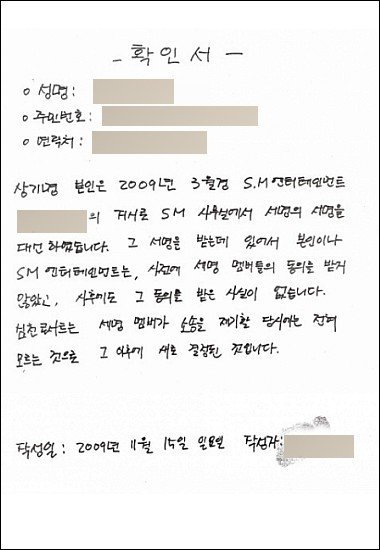 - 확인서 -
o 성명:
o 주민번호:
o 연락처:
상기명 본인은 2009년 3월경 S.M 엔터테인먼트
의 지시로 SM 사무실에서 세명의 서명을
대신 하였습니다. 그 서명을 받는데 있어서 본인이나
SM 엔터테인먼트는, 사전에 세명 멤버들의 동의를 받지
않았고, 사후에도 그 동의를 받은 사실이 없습니다.
심천 콘서트는 세명 멤버가 소송을 제기할 당시에는 전혀
모르는 것으로 그 이후에 새로 결정된 것입니다.
작성일: 2009년 11월 15일 일요일 작성자: